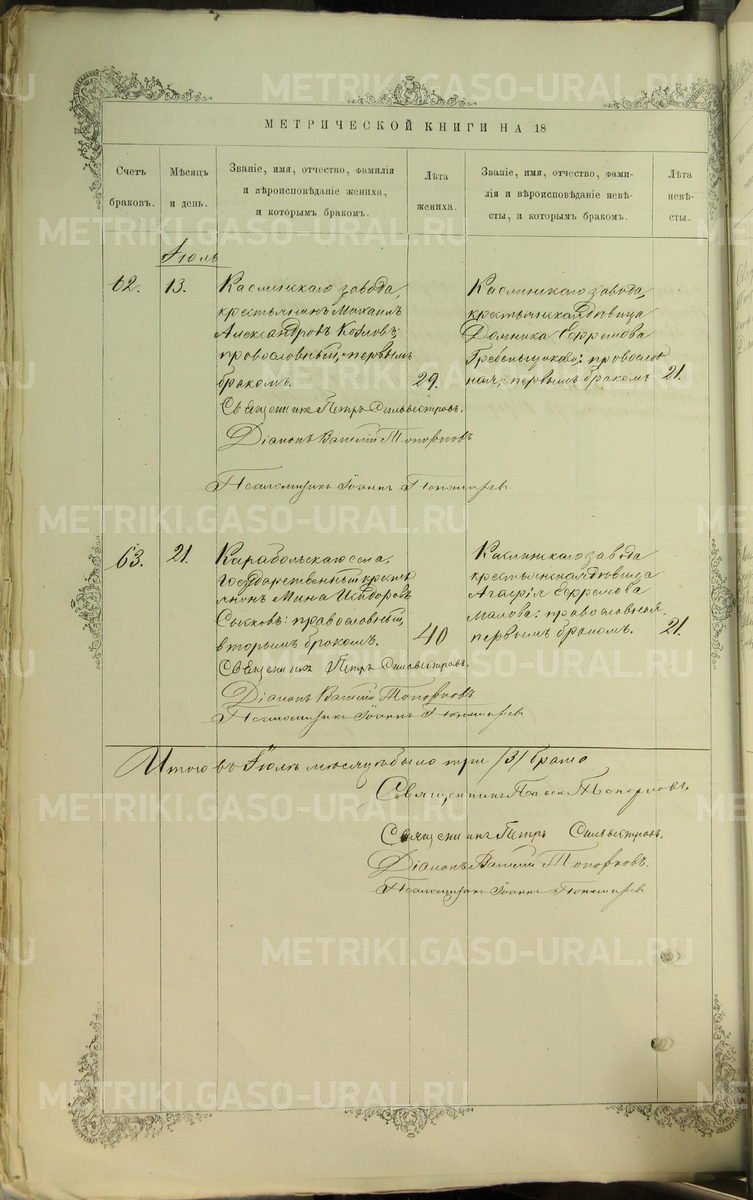 МЕТРИЧЕСКОЙ КНИГИ НА 18
Счетъ браковъ.
Мѣсяцъ и день.
Званіе, имя, отчество, фамилія
и вѣроисповѣданіе жениха,
и которымъ бракомъ.
Лѣта жениха.
Званіе, имя, отчество, фами-
лія и вѣроисповѣданіе невѣ-
сты, и которымъ бракомъ.
Лѣта невѣ-
сты.
Іюль
62.
13.
Каслинскаго завода,
крестьянинъ Михаилъ
Александровъ Козловъ;
провословный, первымъ
бракомъ.
29.
Каслинскаго завода,
крестьянская дѣвица
Домника Ефремова
провослов
ная, первымъ бракомъ
21.
Священникъ Петръ Сильвестровъ,
Діаконъ Василій Топорковъ
Псаломщикъ Іоаннъ
63.
21.
Карабольскаго села,
государственный кресть
янинъ Мина Исидоровъ
провословный,
вторымъ бракомъ.
40
Каслинскаго завода
крестьянская дѣвица
Агафія Ефремова
Малова: провословной,
первымъ бракомъ.
21.
Священникъ Петръ Сильвестровъ,
Діаконъ Василій Топорковъ
Псаломщикъ Іоаннъ
Итого въ Іюлѣ мѣсяцѣ было три /3/ брака
Священникъ Топорковъ
Священникъ Петръ Сильвестровъ,
Діаконъ Василій Топорковъ.
Псаломщикъ Іоаннъ
METRIKI.GASO-URAL.RU